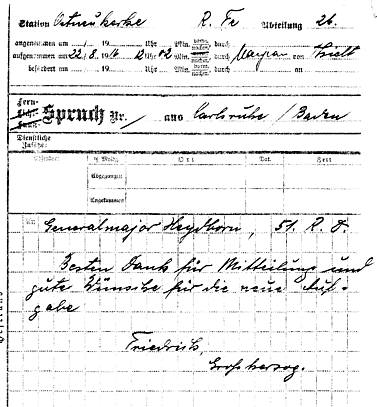 Station Ostnieukerke R. Fe Abteilung 26.
angenommen am / 19 Uhr Min. vorm. nachm. durch
aufgenommen am 22/8. 1916 12 Uhr 02 Min. vorm. nachm. durch von Thielt
befördert am / 19 Uhr Min. vorm. nachm. durch an
Fern-
Licht-
Funk-
Spruch Nr. / aus Karlsruhe / Baden
Dienstliche
Zusätze:
Absender: Meldg. Ort Dat. Zeit
Abgegangen
Angekommen
An Generalmajor Heydborn, 51. R. D.
Besten Dank für Mitteilung und
gute Wünsche für die neue Auf-
gabe
Friedrich,
Großherzog.